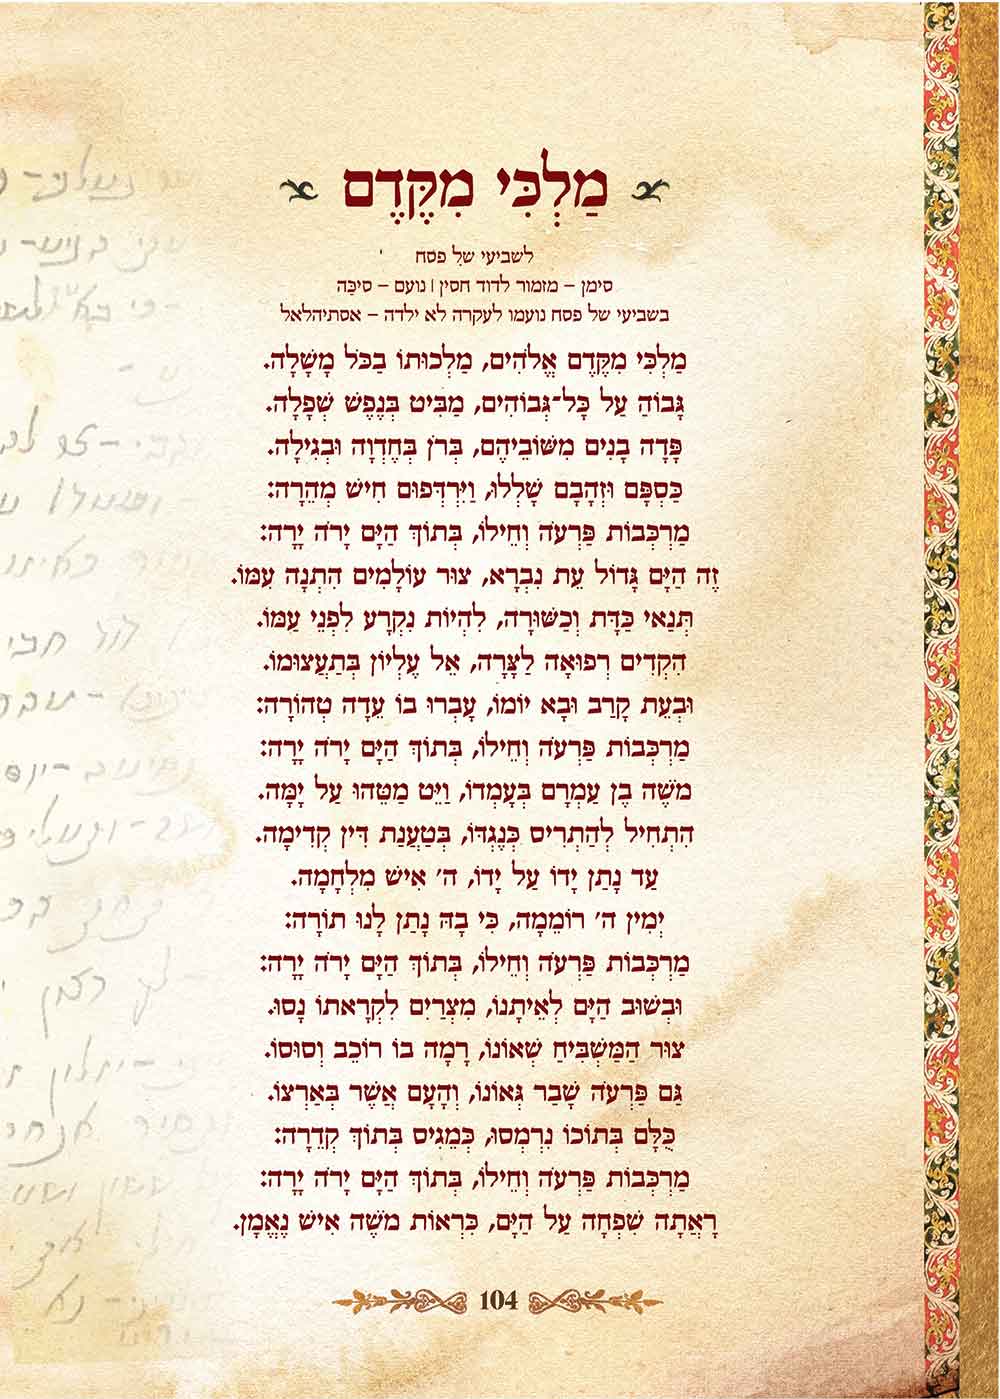 מַלְכִּי מִקֶּדֶם
לשביעי של פסח
סימן – מזמור לדוד חסין | נועם – סיכָּה
בשביעי של פסח נועמו לעקרה לא ילדה – אסתיהלאל
מַלְכִּי מִקֶּדֶם אֱלֹהִים, מַלְכוּתוֹ בַכֹּל מָשָׁלָה.
גָּבוֹהַּ עַל כָּל־גְּבוֹהִים, מַבִּיט בְּנֶפֶשׁ שְׁפָלָה.
פָּדָה בָנִים מִשּׁוֹבֵיהֶם, בְּרֹן בְּחֶדְוָה וּבְגִילָה.
כַּסְפָּם וּזְהָבָם שָׁלְלוּ, וַיִּרְדְּפוּם חִישׁ מְהֵרָה:
מַרְכְּבוֹת פַּרְעֹה וְחֵילוֹ, בְּתוֹךְ הַיָּם יָרֹה יָרָה:
זֶה הַיָּם גָּדוֹל עֵת נִבְרָא, צוּר עוֹלָמִים הִתְנָה עִמּוֹ.
תְּנַאי כַּדָּת וְכַשּׁוּרָה, לִהְיוֹת נִקְרָע לִפְנֵי עַמּוֹ.
הִקְדִּים רְפוּאָה לַצָּרָה, אֵל עֶלְיוֹן בְּתַעֲצוּמוֹ.
וּבְעֵת קָרַב וּבָא יוֹמוֹ, עָבְרוּ בוֹ עֵדָה טְהוֹרָה:
מַרְכְּבוֹת פַּרְעֹה וְחֵילוֹ, בְּתוֹךְ הַיָּם יָרֹה יָרָה:
מֹשֶׁה בֶן עַמְרָם בְּעָמְדוֹ, וַיֵּט מַטֵּהוּ עַל יָמָּה.
הִתְחִיל לְהַתְרִיס כְּנֶגְדּוֹ, בְּטַעֲנַת דִּין קְדִימָה.
עַד נָתַן יָדוֹ עַל יָדוֹ, ה' אִישׁ מִלְחָמָה.
יְמִין ה' רוֹמֵמָה, כִּי בָהּ נָתַן לָנוּ תוֹרָה:
מַרְכְּבוֹת פַּרְעֹה וְחֵילוֹ, בְּתוֹךְ הַיָּם יָרֹה יָרָה:
וּבְשׁוּב הַיָּם לְאֵיתָנוֹ, מִצְרַיִם לִקְרָאתוֹ נָסוּ.
צוּר הַמַּשְׁבִּיחַ שְׁאוֹנוֹ, רָמָה בוֹ רוֹכֵב וְסוּסוֹ.
גַּם פַּרְעֹה שָׁבַר גְּאוֹנוֹ, וְהָעָם אֲשֶׁר בְּאַרְצוֹ.
כֻּלָּם בְּתוֹכוֹ נִרְמְסוּ, כְּמֵגִיס בְּתוֹךְ קְדֵרָה:
מַרְכְּבוֹת פַּרְעֹה וְחֵילוֹ, בְּתוֹךְ הַיָּם יָרֹה יָרָה:
רָאֲתָה שִׁפְחָה עַל הַיָּם, כִּרְאוֹת מֹשֶׁה אִישׁ נֶאֱמָן.
104